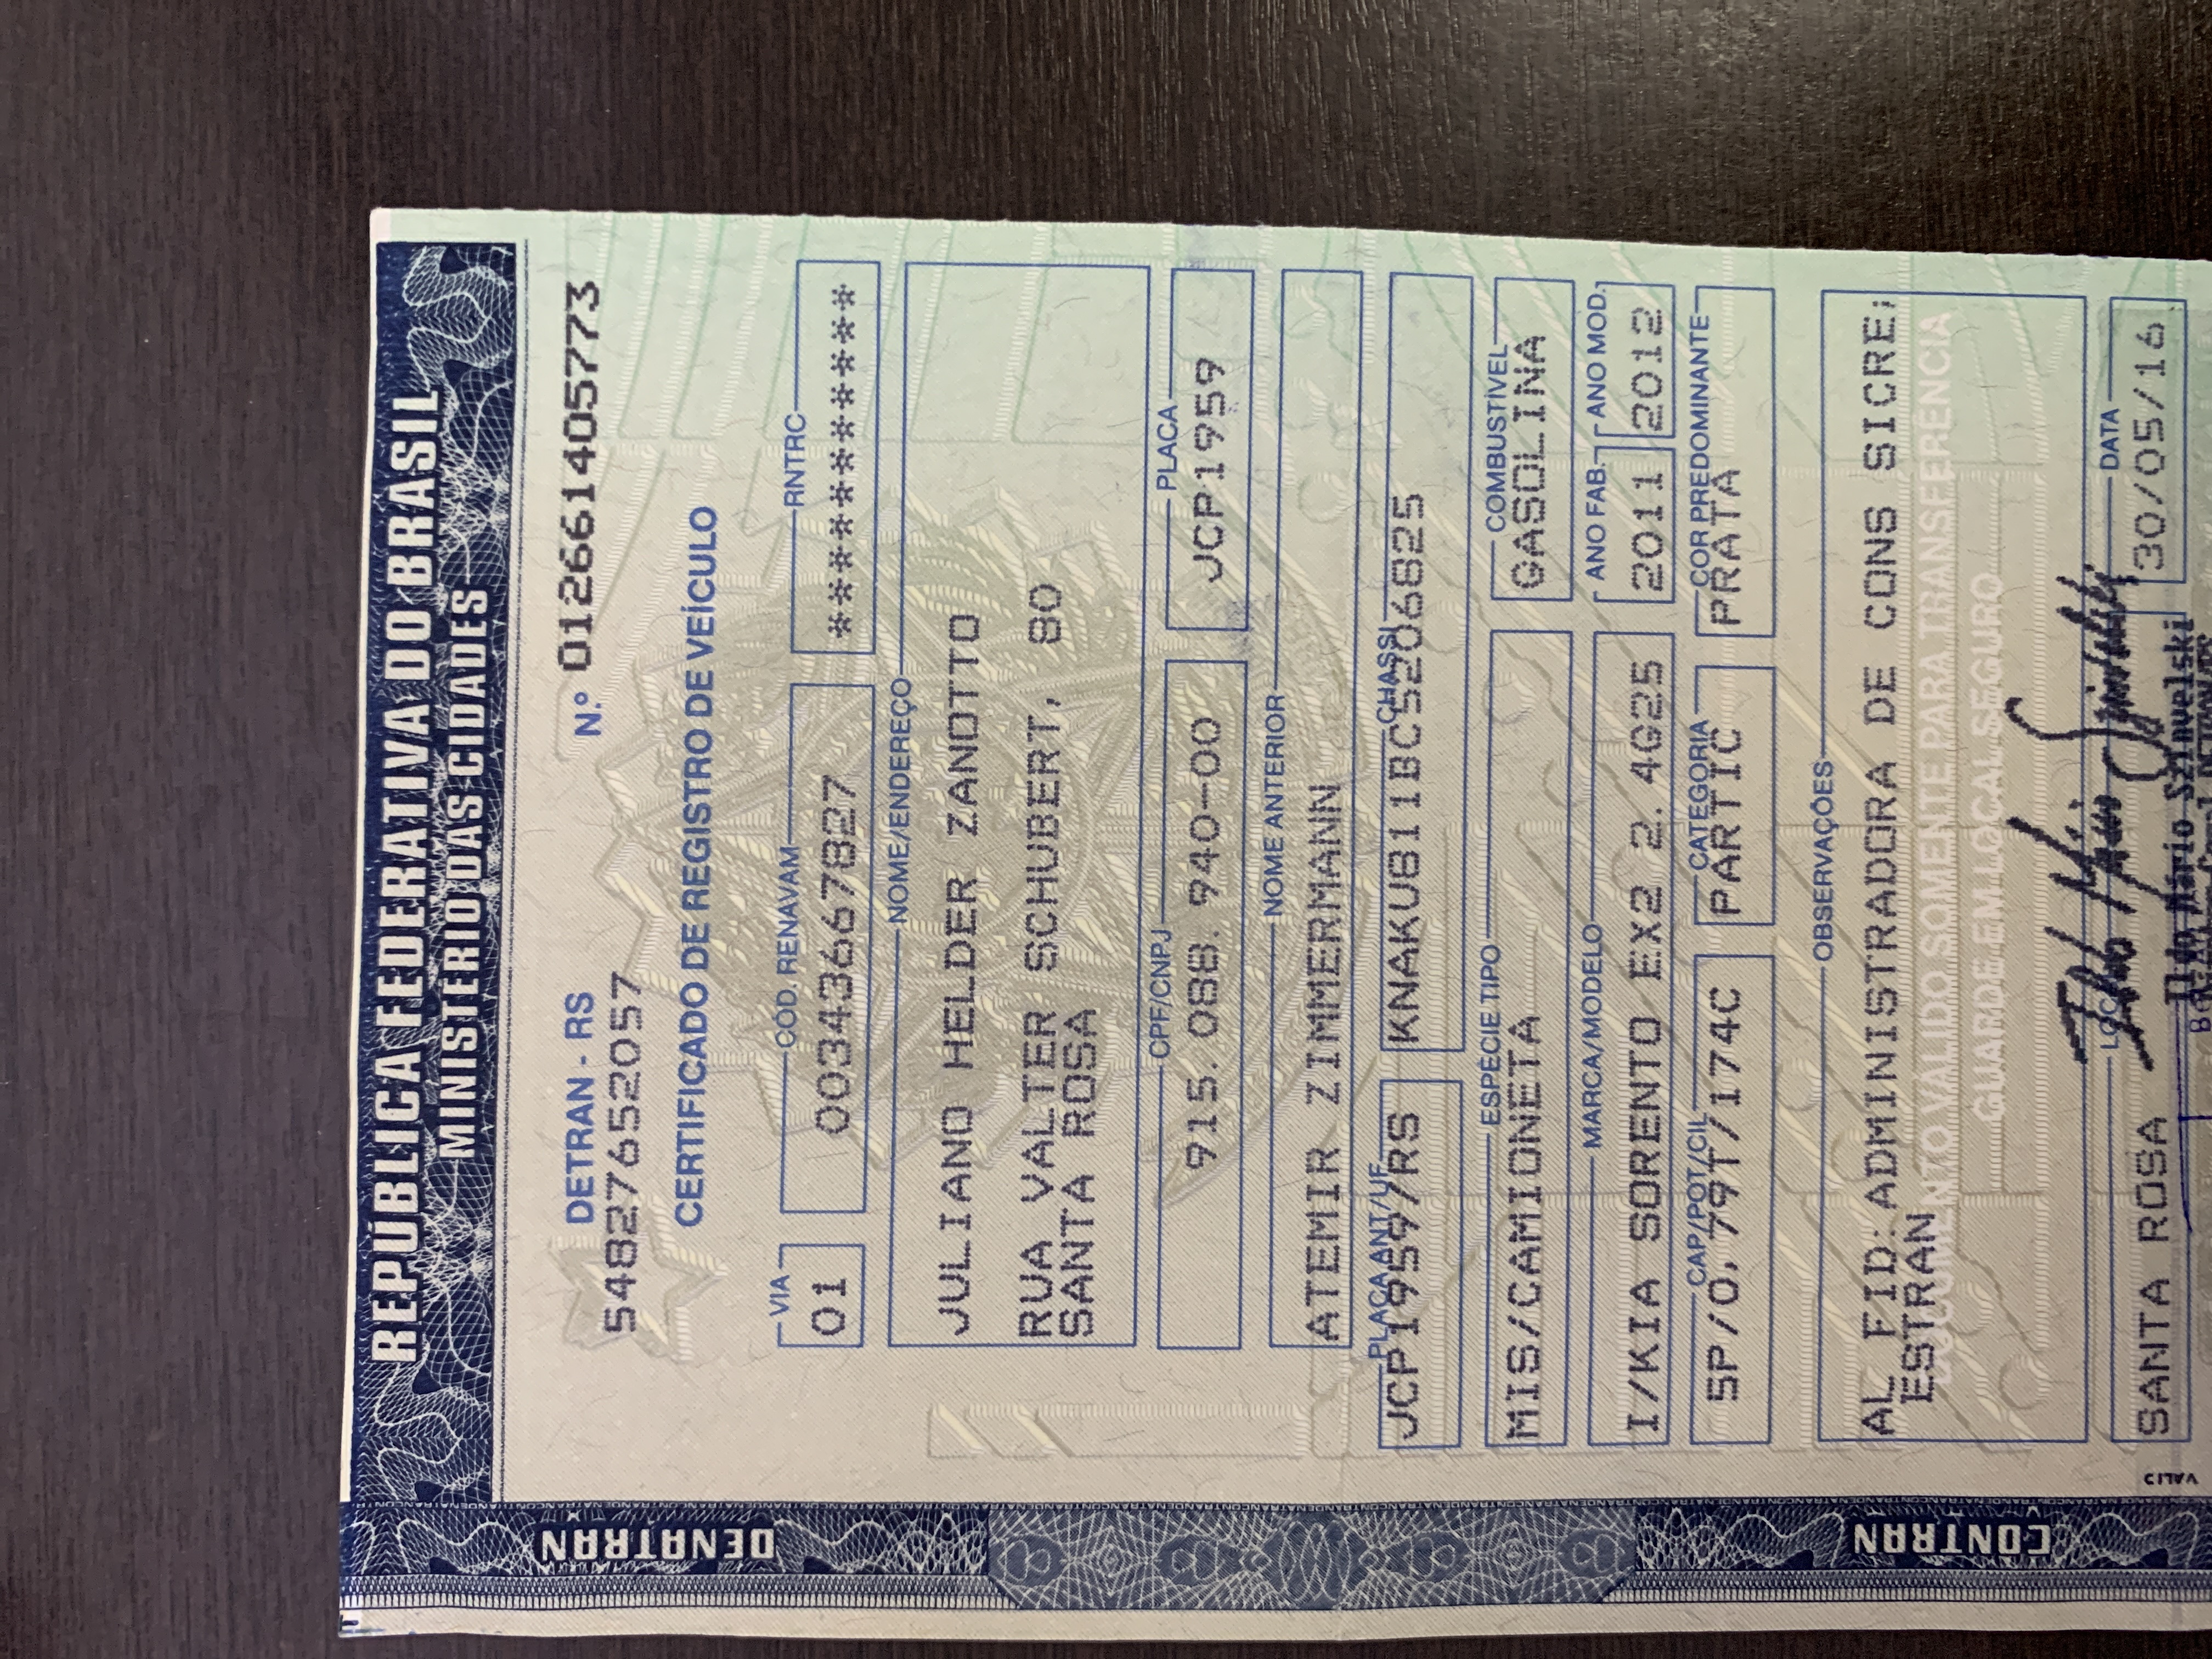 REPÚBLICA FEDERATIVA DO BRASIL
MINISTÉRIO DAS CIDADES
DETRAN - RS
N.º 012661405773
54827652057
CERTIFICADO DE REGISTRO DE VEÍCULO
VIA
COD. RENAVAM
RNTRC
01
00343667827
************
NOME/ENDEREÇO
JULIANO HELDER ZANOTTO
RUA VALTER SCHUBERT, 80
SANTA ROSA
CPF/CNPJ
PLACA
915.088.940-00
JCP1959
NOME ANTERIOR
ATEMIR ZIMMERMANN
PLACA ANT/UF
CHASSI
JCP1959/RS
KNAKU811BC5206825
ESPÉCIE TIPO
COMBUSTÍVEL
MIS/CAMIONETA
GASOLINA
MARCA/MODELO
ANO FAB.
ANO MOD.
I/KIA SORENTO EX2 2.4G25
2011
2012
CAP/POT/CIL
CATEGORIA
COR PREDOMINANTE
5P/0,79T/174C
PARTIC
PRATA
OBSERVAÇÕES
AL FID:ADMINISTRADORA DE CONS SICRE;
ESTRAN
VALIDO SOMENTE PARA TRANSFERENCIA
GUARDE EM LOCAL SEGURO
DATA
SANTA ROSA
30/05/16
Mario Szinvelski
DENATRAN
CONTRAN